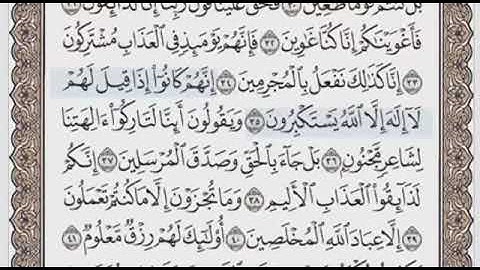 بَلْ كُنتُمْ قَوْمًا طَٰغِينَ ٣٠ فَحَقَّ عَلَيْنَا قَوْلُ رَبِّنَآ إِنَّا لَذَآئِقُونَ ٣١
فَأَغْوَيْنَٰكُمْ إِنَّا كُنَّا غَٰوِينَ ٣٢ فَإِنَّهُمْ يَوْمَئِذٍ فِي ٱلْعَذَابِ مُشْتَرِكُونَ
٣٣ إِنَّا كَذَٰلِكَ نَفْعَلُ بِٱلْمُجْرِمِينَ ٣٤ إِنَّهُمْ كَانُوٓا۟ إِذَا قِيلَ لَهُمْ
لَآ إِلَٰهَ إِلَّا ٱللَّهُ يَسْتَكْبِرُونَ ٣٥ وَيَقُولُونَ أَئِنَّا لَتَارِكُوٓا۟ ءَالِهَتِنَا
لِشَاعِرٍ مَّجْنُونٍۭ ٣٦ بَلْ جَآءَ بِٱلْحَقِّ وَصَدَّقَ ٱلْمُرْسَلِينَ ٣٧ إِنَّكُمْ
لَذَآئِقُوا۟ ٱلْعَذَابِ ٱلْأَلِيمِ ٣٨ وَمَا تُجْزَوْنَ إِلَّا مَا كُنتُمْ تَعْمَلُونَ
٣٩ إِلَّا عِبَادَ ٱللَّهِ ٱلْمُخْلَصِينَ ٤٠ أُو۟لَٰٓئِكَ لَهُمْ رِزْقٌ مَّعْلُومٌ ٤١